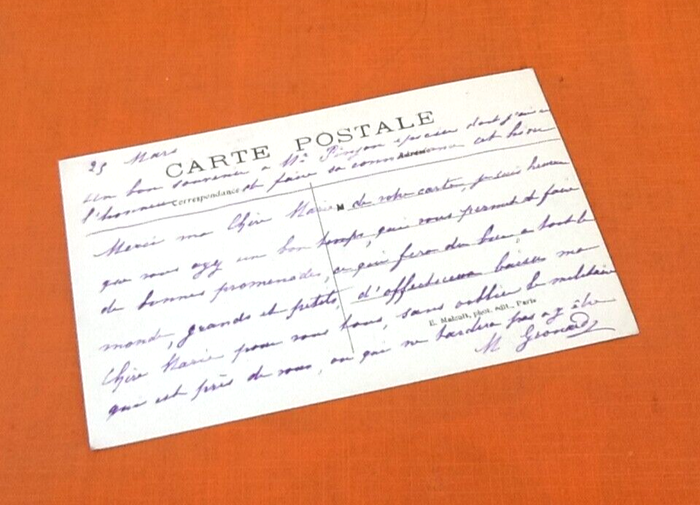 25 Mars
CARTE POSTALE
un bon souvenir a Mr Pinson dont j'ai eu
l'honneur et faire sa connaissance cet hiver
Correspondance
Adresse
Merci ma Chère Marie de votre carte, je suis heureuse
M
que vous ayez un bon temps, qui vous permet de faire
de bonnes promenades, ce qui fera du bien a tout le
monde, grands et petits, d'affectueux baisers ma
Chère Marie pour vous tous, sans oublier le militaire
E. Malcuit, phot. édit., Paris
qui est près de vous, ou qui ne tardera pas a y être
M